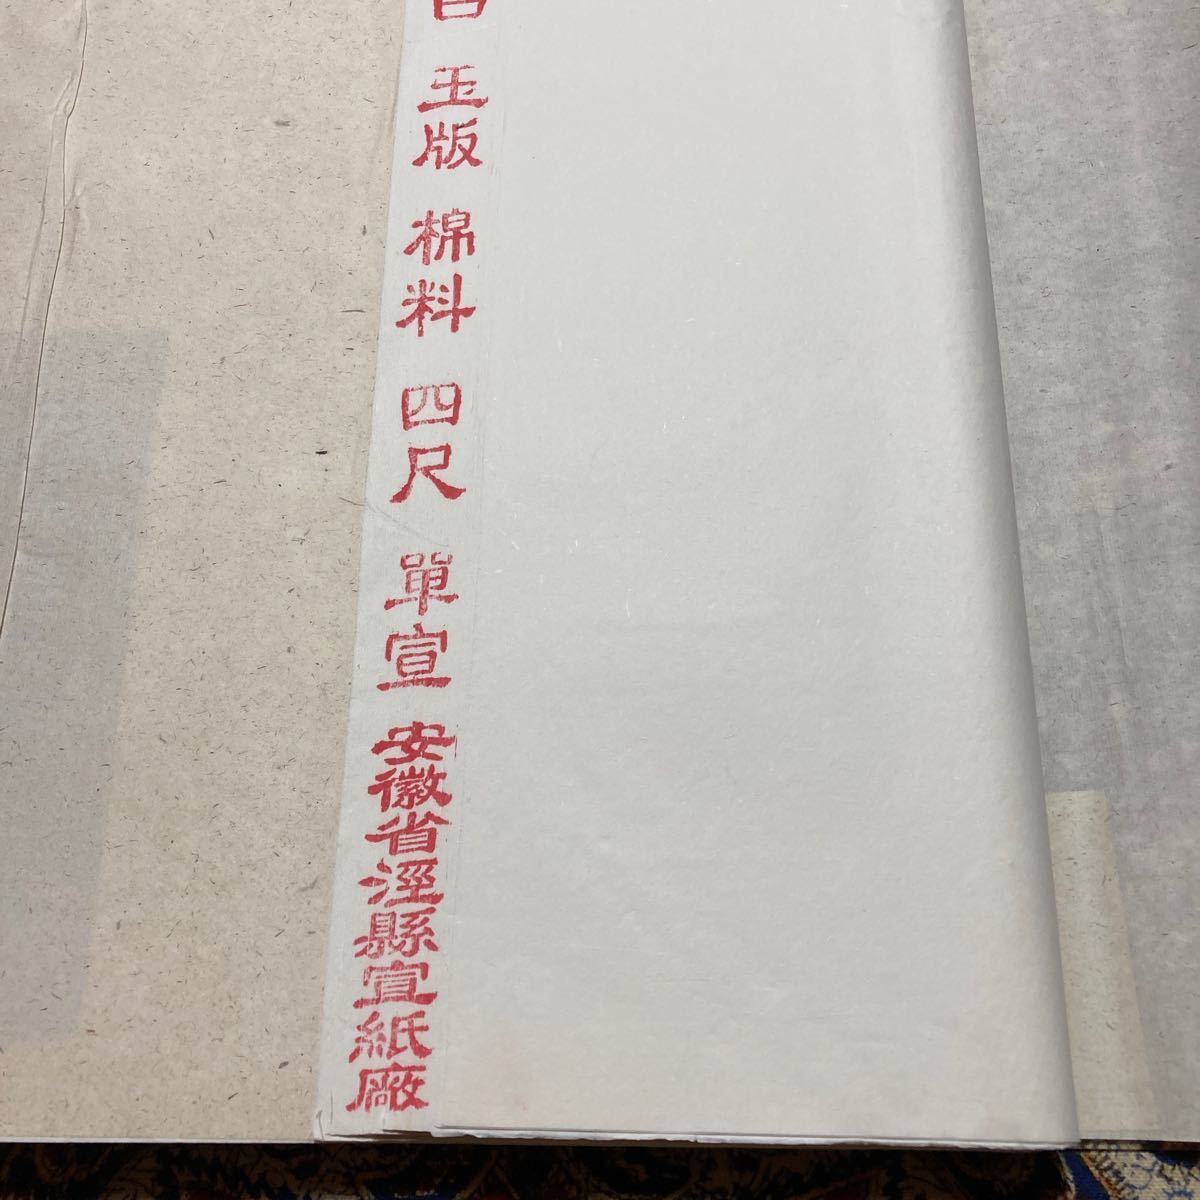 玉版 棉料 四尺 單宣 安徽省涇縣宣紙廠